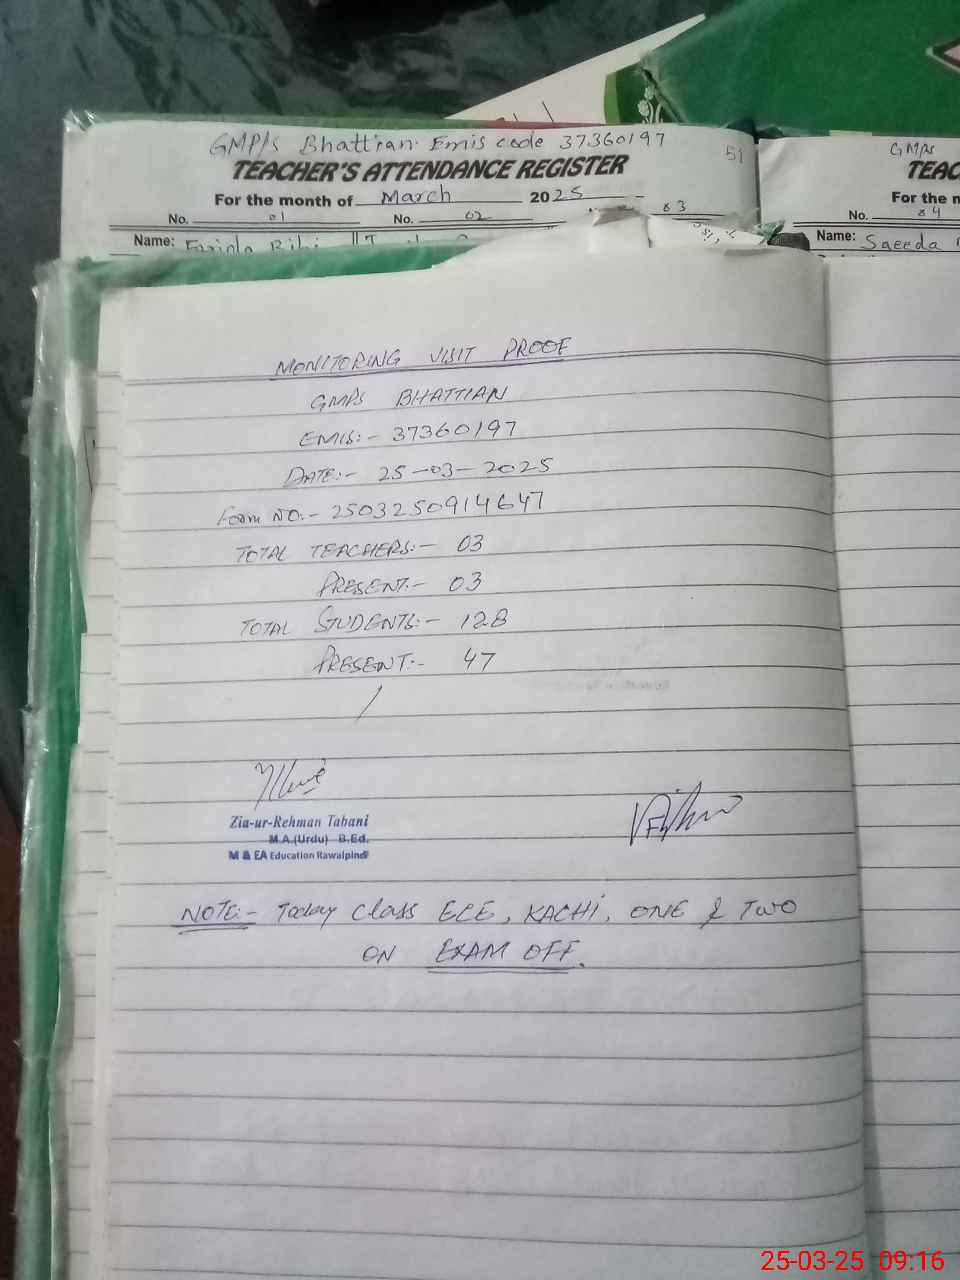 GMP/s Bhattian. Emis code 37360197
51
TEACHER'S ATTENDANCE REGISTER
For the month of March 2025
No. 01 No. 02 03
Name:
GMPs
TEAC
For the m
No. 04
Name: Saeeda
MONITORING VISIT PROOF
GMPS BHATTIAN
EMIS:- 37360197
DATE:- 25-03-2025
Form NO.- 2503250914647
TOTAL TEACHERS:- 03
PRESENT:- 03
TOTAL STUDENTS:- 128
PRESENT:- 47
Zia-ur-Rehman Tabani
M.A.(Urdu) B.Ed.
M & EA Education Rawalpindi
NOTE:- Today Class ECE, KACHI, ONE & TWO
ON EXAM OFF.
25-03-25 09:16